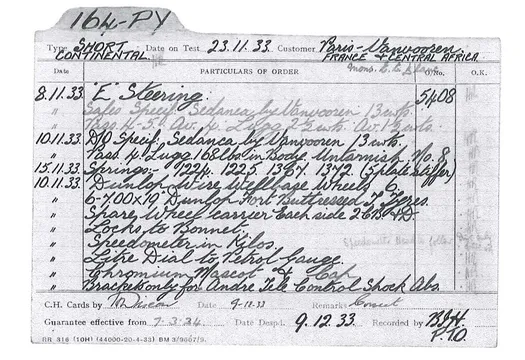 164-PY
Type SHORT CONTINENTAL. Date on Test 23.11.33. Customer Paris-Vanvooren
FRANCE & CENTRAL AFRICA
Mons.
Date PARTICULARS OF ORDER O/No. O.K.
8.11.33 "E" Steering. 5408
" Sales Specif. Sedanca by Vanvooren 13 cwts.
" Pass 4
10.11.33. D/O Specif. Sedanca by Vanvooren 13 cwts.
" Pass. 4. Lugg 168 lbs in Body Untarnish No. 8.
15.11.33 Springs:- 1224. 1225. 1367. 1372 (5 plate stiffer)
10.11.33. Dunlop Wire Wellbase Wheels 6.
" 6-7.00x19 Dunlop Fort Buttressed 7 Tyres.
" Spare Wheel carrier Each side 26B 4D.
" Locks to Bonnet.
" Speedometer in Kilos.
" Litre Dial to Petrol Gauge.
" Chromium Mascot & Cap
" Brackets only for Andre Tele Control Shock Abs.
C.H. Cards by Date 9-12-33 Remarks Consent
Guarantee effective from 7-3-34 Date Despd. 9.12.33. Recorded by BJH
P.T.O.
RR 316 (10H) (44000-20-4-33) BM 3/9607/9.